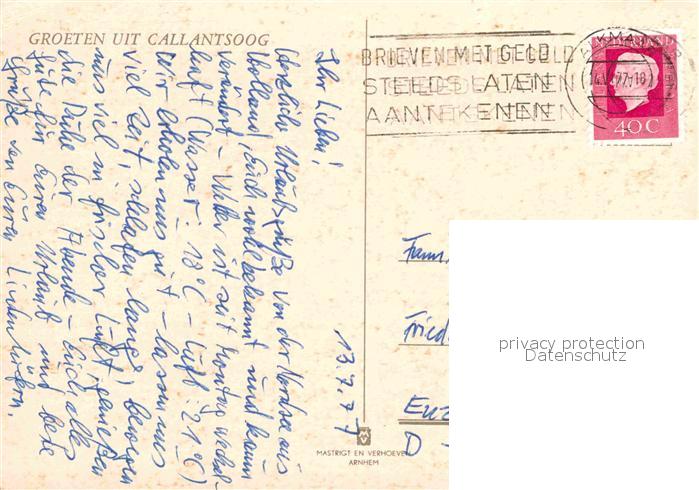 GROETEN UIT CALLANTSOOG
BRIEVEN MET GELD
STEEDS LATEN
AANTEKENEN
ALKMAAR
14.VII.77.-18
NEDERLAND
40 C
13.7.77
Ihr Lieben!
Herzliche Urlaubsgrüße von der Nordsee aus
Holland, Euch wohlbekannt und kaum
verändert - Wetter ist seit Montag wechsel-
haft (Wasser: 18°C - Luft: 21°C)
Wir erholen uns gut - lassen uns
viel Zeit, schlafen lange, bewegen
uns viel in frischer Luft, genießen
die Ruhe der Abende - Euch alles
Gute für Euren Urlaub und beste
Grüße von Euren
Fam.
Friede
Enz
D
MASTRIGT EN VERHOEVEN
ARNHEM
privacy protection
Datenschutz